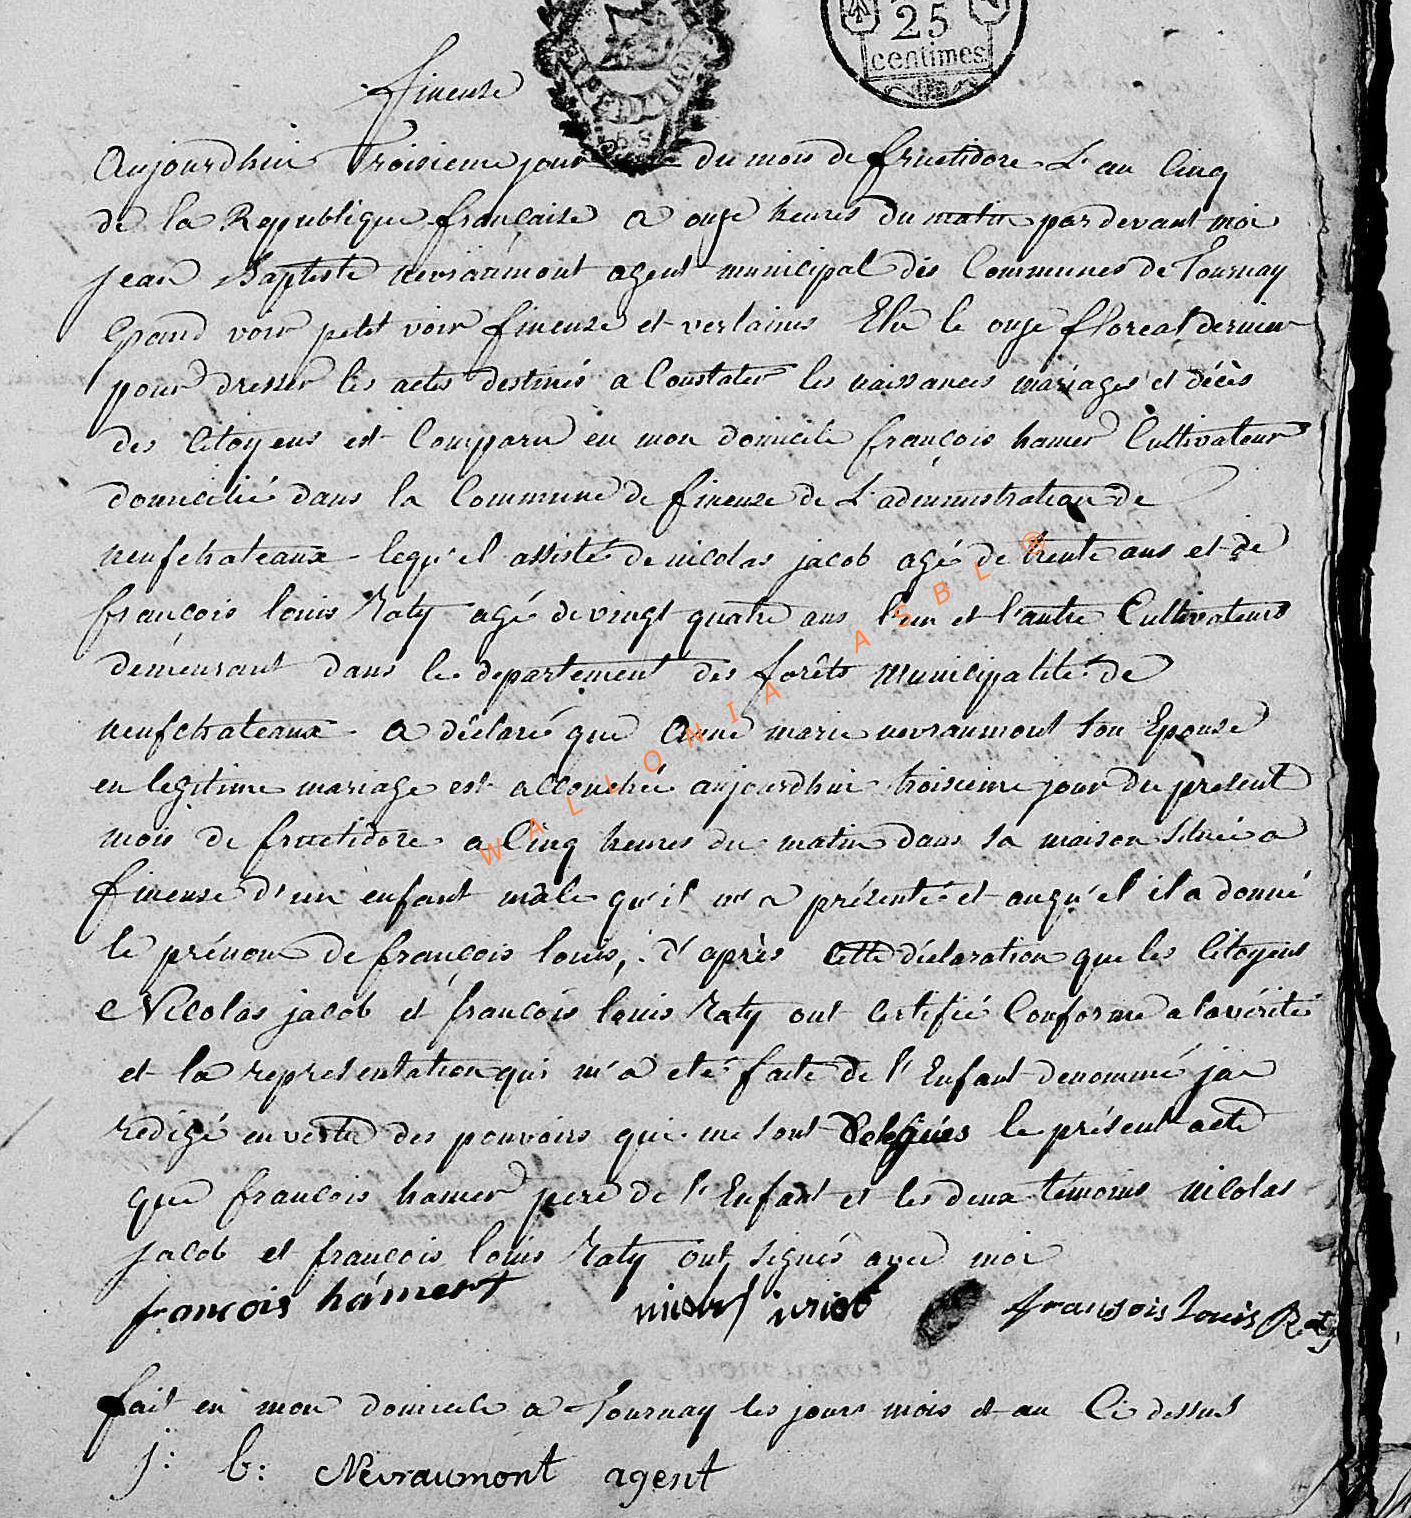 25
centimes
fineuse
Aujourdhui Troisieme jour du mois de fructidore L'an Cinq
de la Republique française a onze heures du matin pardevant moi
jean Baptiste nevraumont agent municipal des Communes de Tournay
Grand voir petit voir fineuse et verlaines Elu le onze floreal dernier
pour dresser les actes destinés a Constater les naissances mariages et décès
des Citoyens est Comparu en mon domicile françois hamer Cultivateur
domicilié dans la Commune de fineuse de L'administration de
neufchateaux lequ'el assisté de nicolas jacob agé de trente ans et de
françois louis Raty agé de vingt quatre ans l'un et l'autre Cultivateurs
demeurant dans le departement des forêts municipalité de
neufchateaux a déclaré que Anne marie nevraumont son Epouse
en legitime mariage est accouchée aujourdhui troisieme jour du présent
mois de fructidore a Cinq heures du matin dans sa maison située a
fineuse d'un enfant mâle qu'il m'a présenté et auqu'el il a donné
le prénom de françois louis, d'après cette déclaration que les Citoyens
Nicolas jacob et françois louis Raty ont certifié Conforme a la vérité
et la representation qui m'a eté faite de l'Enfant denommé jai
redigé en vertu des pouvoirs qui me sont Delegués le présent acte
que françois hamer pere de l'Enfant et les deux témoins nicolas
jacob et françois louis Raty ont signés avec moi
françois hámert
fransois Louis Raty
fait en mon domicile a Tournay les jours mois et an Ci dessus
j: b: Nevraumont agent
WALLONIA ASBL ®